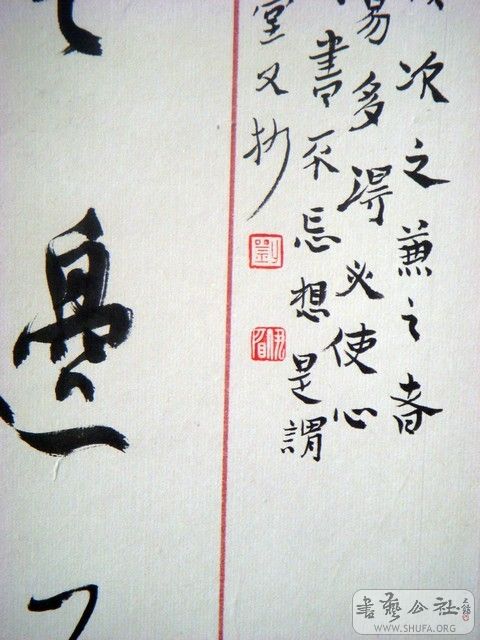 次之兼之者
易多得必使心
書不忘想是謂
堂又抄
劉
書藝公社
WWW.SHUFA.ORG